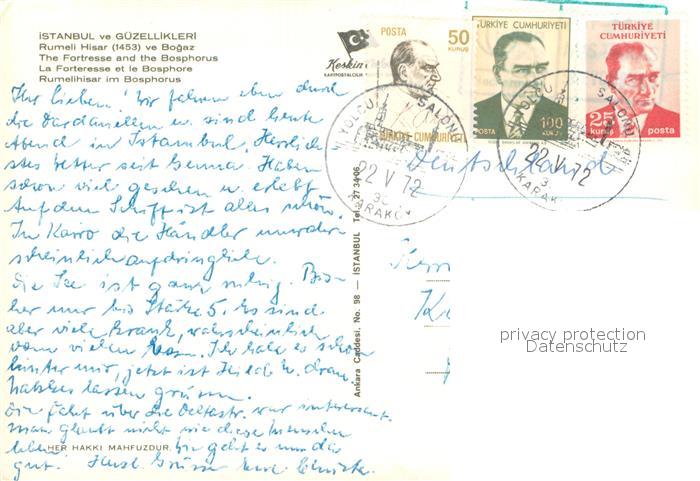 İSTANBUL ve GÜZELLİKLERİ
Rumeli Hisar (1453) ve Boğaz
The Fortresse and the Bosphorus
La Forteresse et le Bosphore
Rumelihisar im Bosphorus
Ihr Lieben! Wir fahren eben durch
die Dardanellen u. sind heute
Abend in Istambul. Herrlich
stes Wetter seit Genua. Haben
schon viel gesehen u. erlebt
Auf dem Schiff ist alles schön.
In Kairo die Händler unwahr
scheinlich aufdringlich.
Die See ist ganz ruhig. Bis
her nur bis Stärke 5. Es sind
aber viele krank, wahrscheinlich
vom vielen Ich habe es schon
hinter mir, jetzt ist dran.
lassen grüssen.
Die Fahrt über die war interessant.
man glaubt nicht wie diese Menschen
leben. Mir geht es nur
gut. Herzl. Grüsse Eure
HER HAKKI MAHFUZDUR.
Keskin
KARTPOSTALCILIK
Ankara Caddesi, No. 98 — İSTANBUL Tel. 27 34 06
POSTA 50 KURUŞ
TÜRKİYE CUMHURİYETİ
TÜRKİYE CUMHURİYETİ
POSTA 100 KURUŞ
TÜRKİYE CUMHURİYETİ
25 kuruş posta
YOLCU SALONU
22 V 72
KARAKÖY
YOLCU SALONU
22 V 72
KARAK
Deutschland
privacy protection
Datenschutz